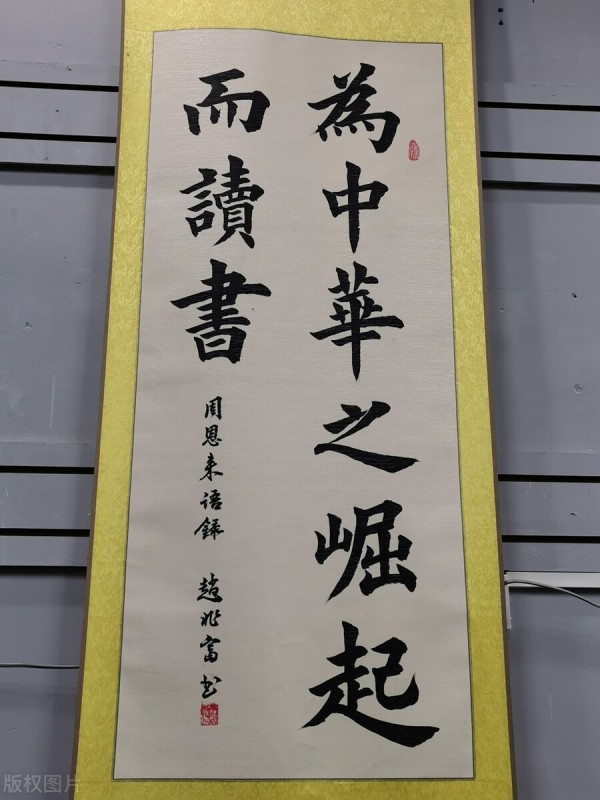 為中華之崛起
而讀書
周恩来语錄 趙兆富书
版权图片